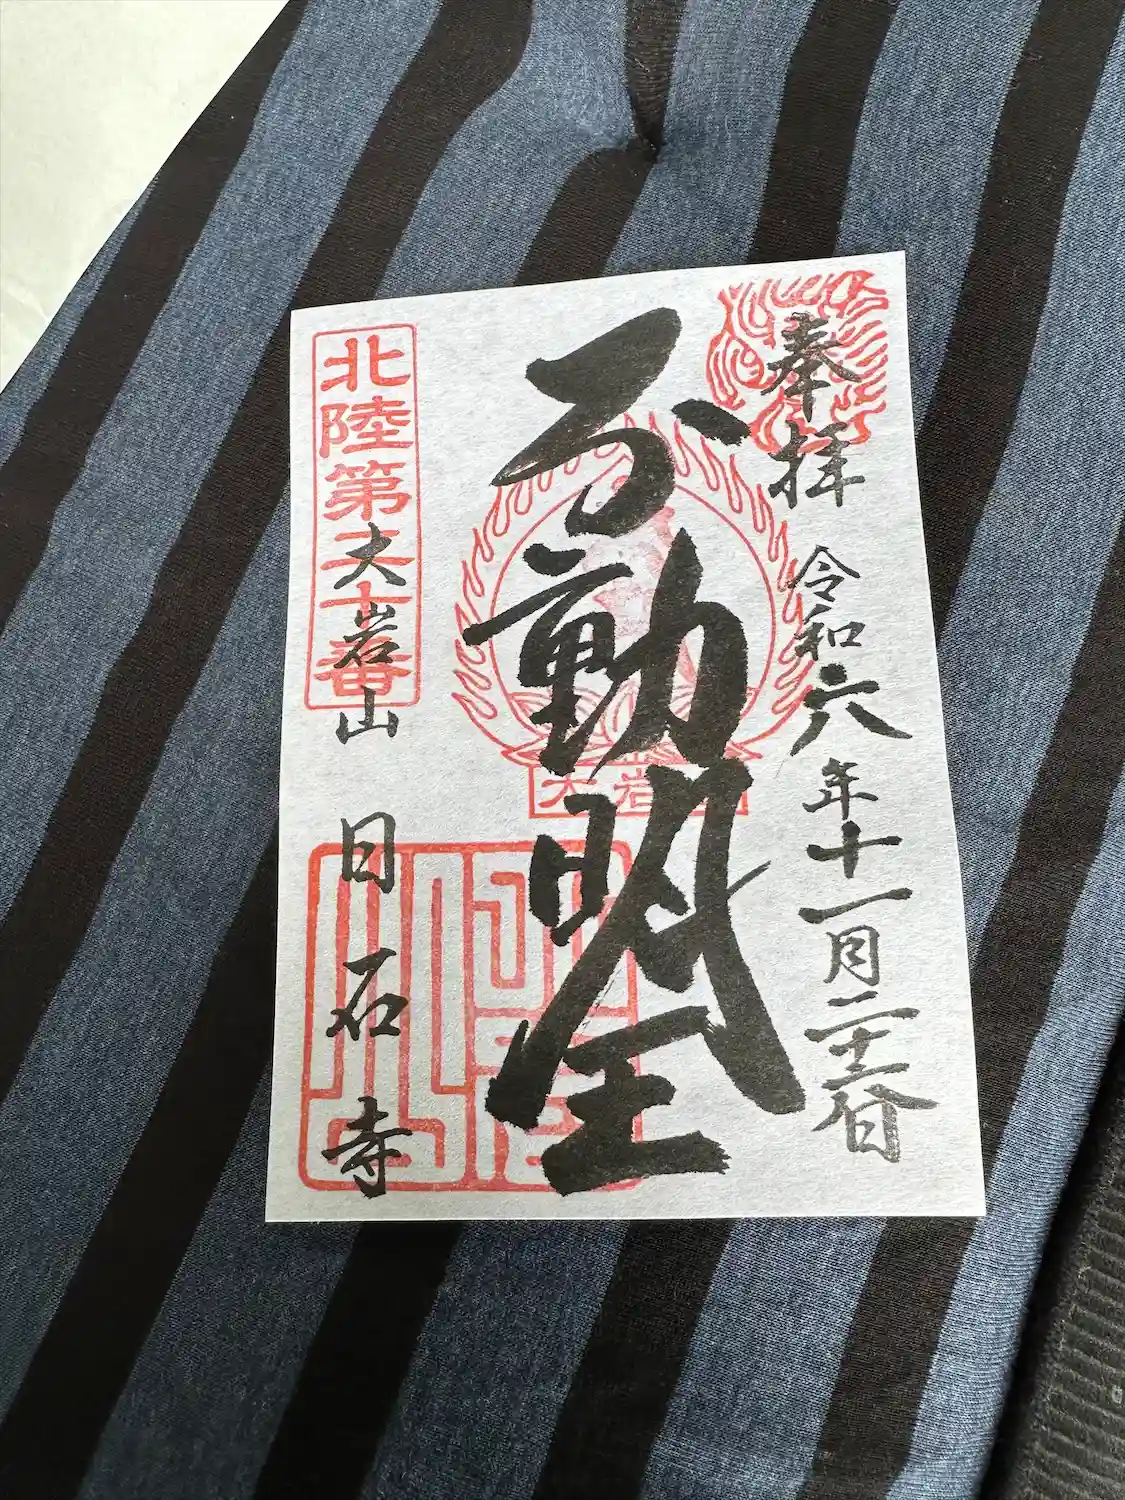 奉拝
令和六年十一月
不動明王
大岩
北陸第
十番
大岩山
日石寺